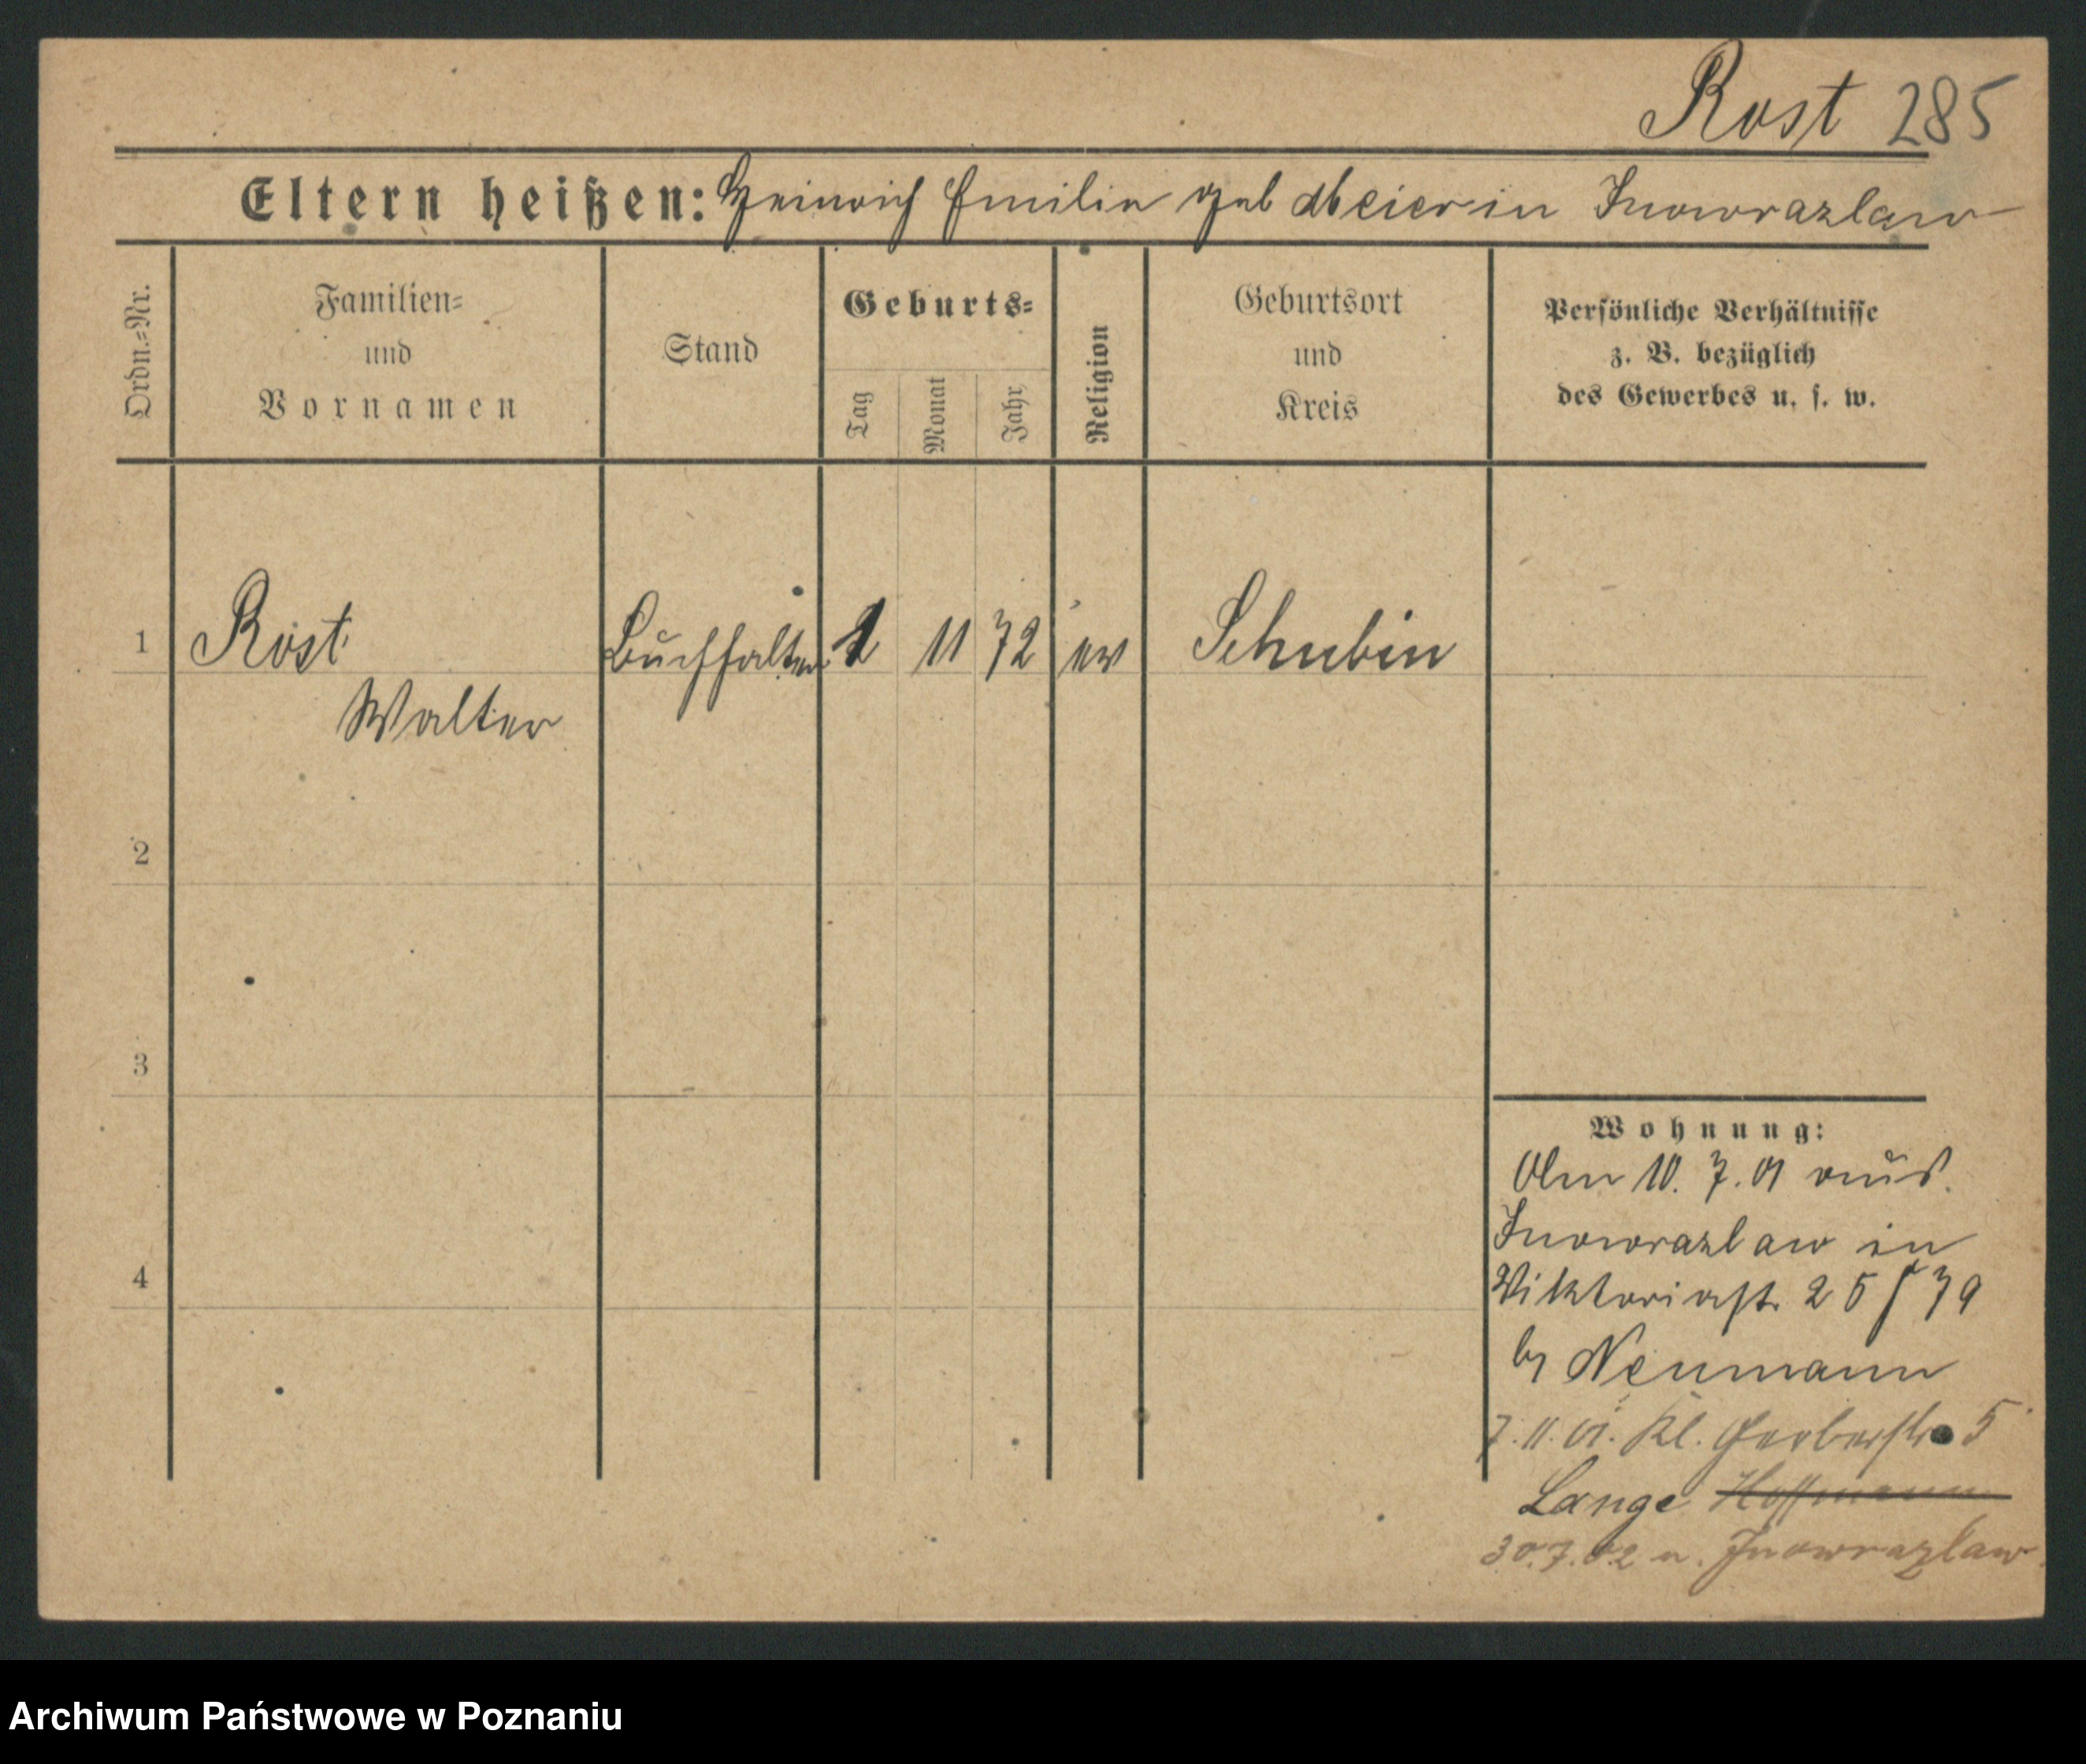 Rost 285
Eltern heißen: Heinrich Emilie geb Meier in Inowrazlaw
Ordn.=Nr.
Familien=
und
Vornamen
Stand
Geburts=
Tag
Monat
Jahr
Religion
Geburtsort
und
Kreis
Persönliche Verhältnisse
z. B. bezüglich
des Gewerbes u. s. w.
1 Rost Buchhalter 11 72 ev Schubin
Walter
2
3
4
Wohnung:
Am 10. 7. 01 aus
Inowrazlaw in
Viktoriastr. 25
b/ Neumann
7. 11. 01. Kl. Gerberstr. 5
Lange Hoffmann
30.7.02 n. Inowrazlaw
Archiwum Państwowe w Poznaniu